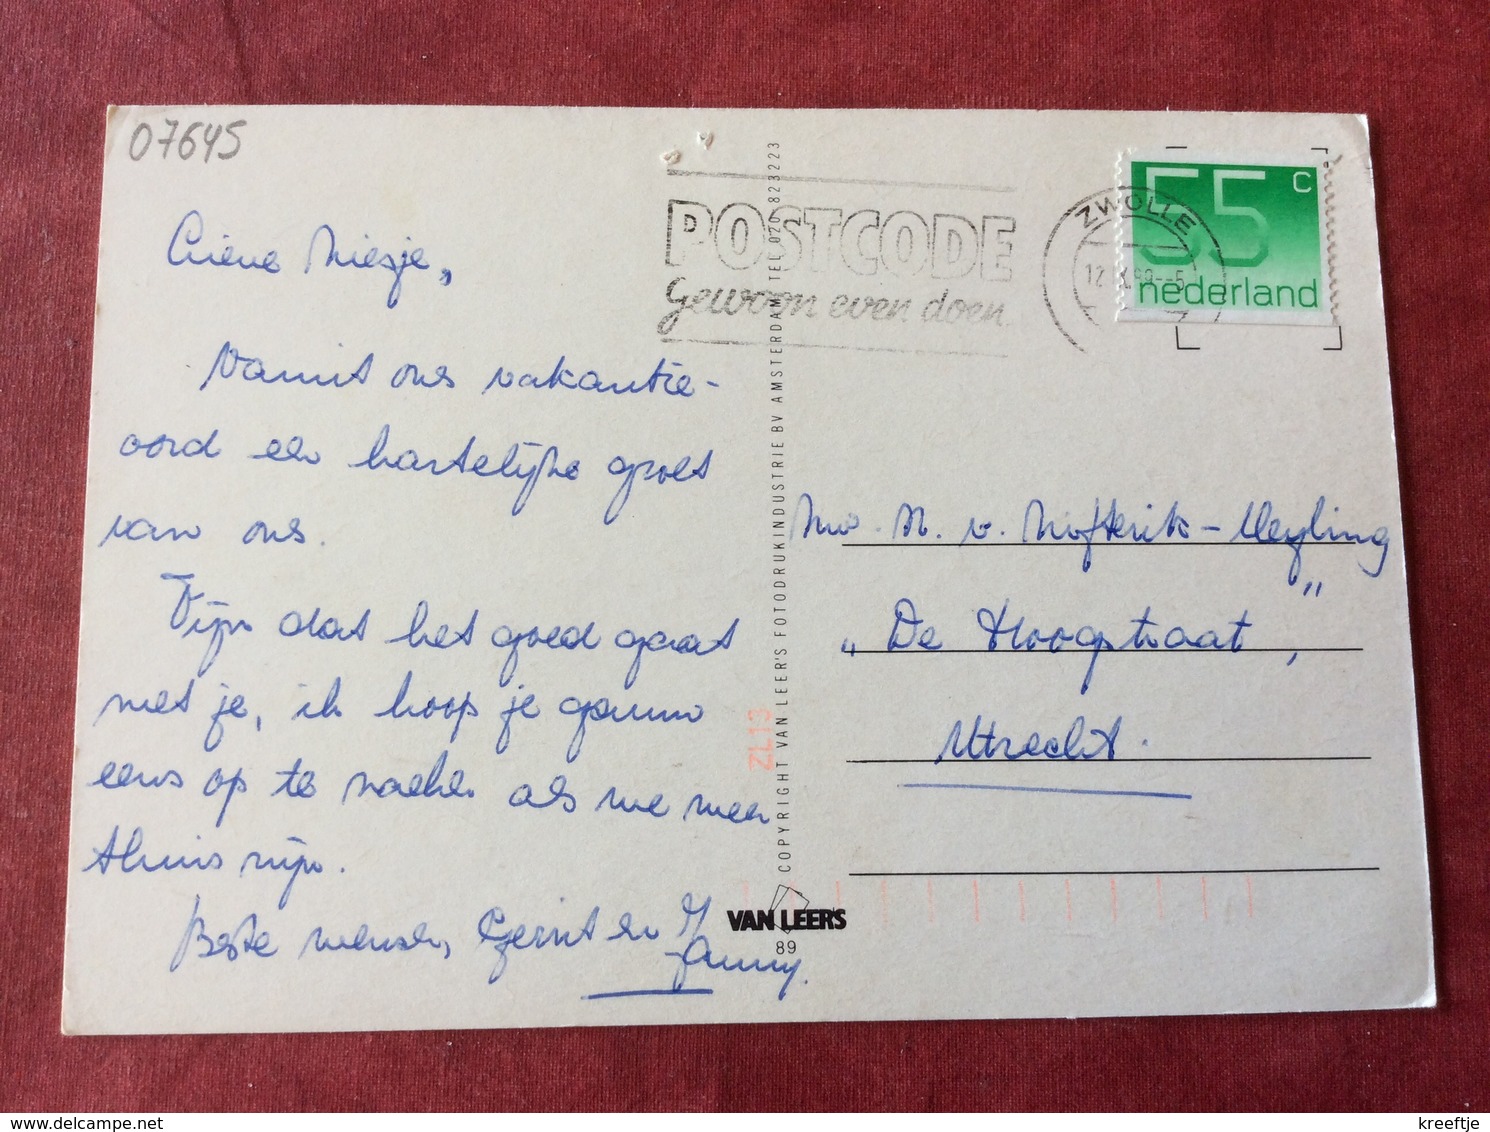 07645
Lieve Miesje,
Vanuit ons vakantie-
oord een hartelijke groet
van ons.
Fijn dat het goed gaat
met je, ik hoop je gauw
eens op te zoeken als we weer
thuis zijn.
Beste wensen, Gerrit en
Janny.
POSTCODE
gewoon even doen
ZWOLLE
55 c
nederland
COPYRIGHT VAN LEER'S FOTODRUKINDUSTRIE BV AMSTERDAM TEL 020 823223
ZL13
VAN LEER'S
89
Mw. M. v.
"De Hoogstraat",
Utrecht.
kreeftje